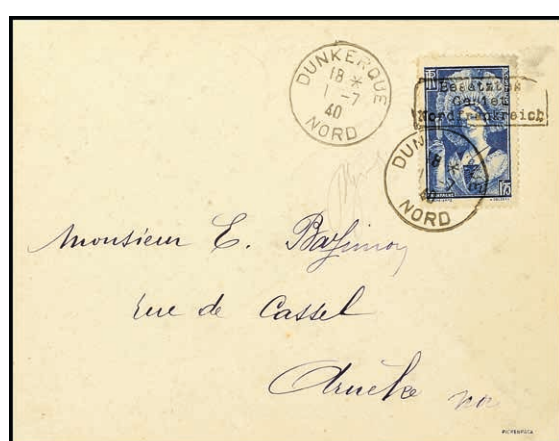 DUNKERQUE
18 *
1 -7
40
NORD
Besetztes
Gebiet
Nordfrankreich
DUNKERQUE
18 *
1 -7
40
NORD
Monsieur E.
rue de Cassel
Arneke